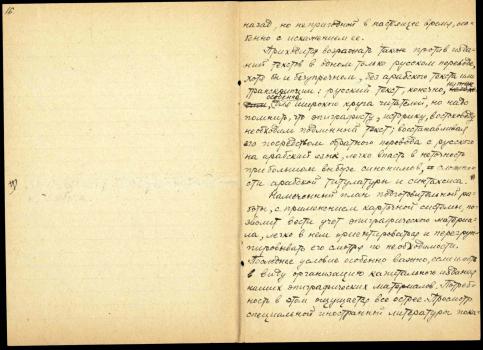 16
назад, но непригодной в настоящее время, осо-
бенно с искажением ее.
Приходится возражать также против изда-
ний текстов в одном только русском переводе,
хотя бы и безупречном, без арабского текста или
транскрипции: русский текст, конечно, нужен
особенно для широкого круга читателей, но надо
помнить, что эпиграфисту, историку, востоковеду
необходим подлинный текст; восстанавливая
его посредством обратного перевода с русского
на арабский язык, легко впасть в неточность
при большом выборе синонимов, сложно-
сти арабской титулатуры и синтаксиса.
Намеченный план подготовительной ра-
боты, с применением карточной системы, по-
зволит вести учет эпиграфического материа-
ла, легко в нем ориентироваться и перегруп-
пировывать его смотря по необходимости.
Последнее условие особенно важно, если иметь
в виду организацию капитального издания
наших эпиграфических материалов. Потреб-
ность в этом ощущается все острее. Просмотр
специальной иностранной литературы пока-